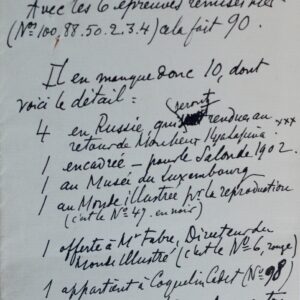 Avec les 6 épreuves remises
(Nos 100, 88. 50. 2. 3. 4) cela fait 90.
Il en manque donc 10, dont
voici le détail =
seront
4 en Russie, qui rendues au
retour de Monsieur
1 encadrée – pour le Salon de 1902.
1 au Musée du Luxembourg
1 au Monde illustré pr la reproduction
(c'est le No 47. en noir)
1 offerte à Mr Fabre, Directeur du
Monde Illustré (c'est le No 6, rouge)
1 appartient à Coquelin Cadet (No 98)